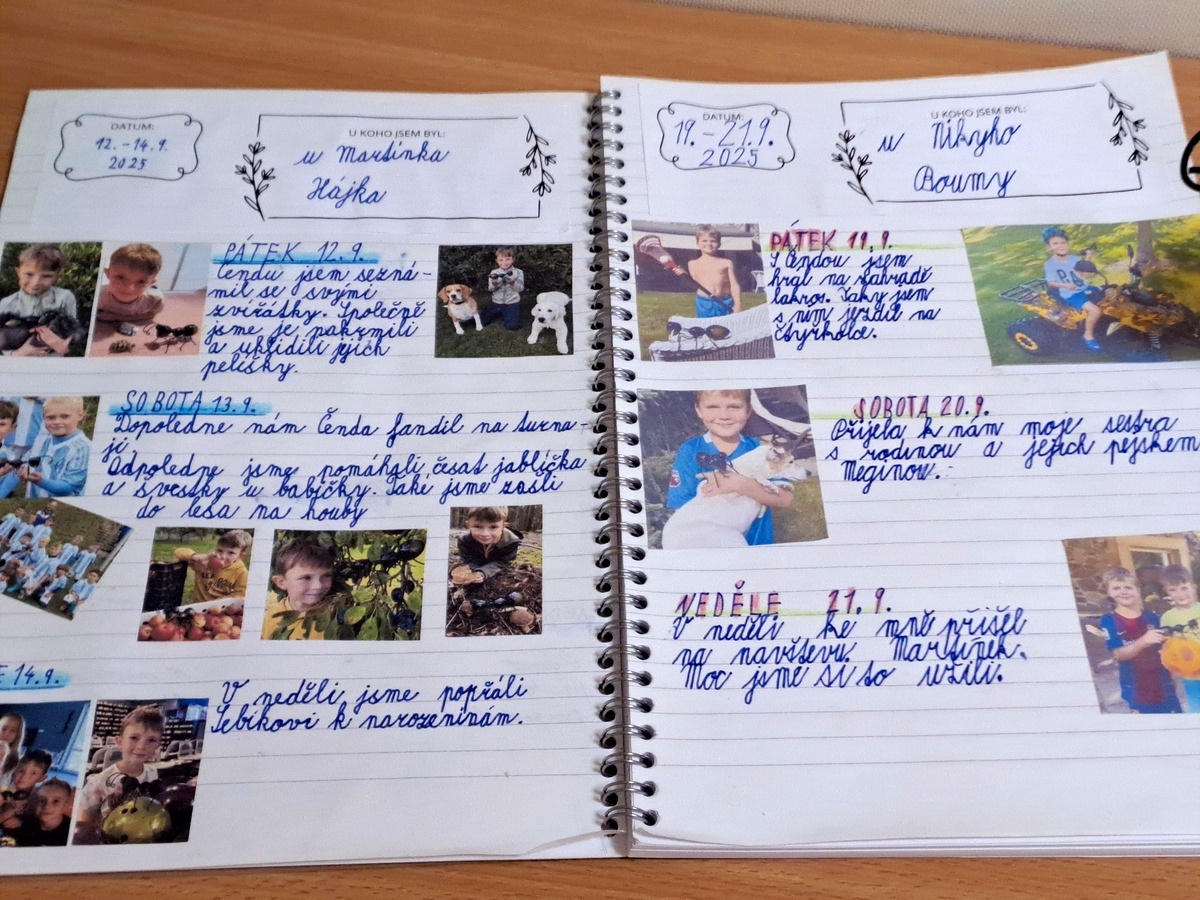 DATUM:
12. - 14. 9.
2025
U KOHO JSEM BYL:
u Martínka
Hájka
PÁTEK 12.9.
Čendu jsem sezná-
mil se svými
zvířátky. Společně
jsme je nakrmili
a uklidili jejich
pelíšky.
SOBOTA 13.9.
Dopoledne nám Čenda fandil na turna-
ji.
Odpoledne jsme pomáhali česat jablíčka
a švestky u babičky. Také jsme zašli
do lesa na houby
E 14.9.
V neděli jsme popřáli
Sebíkovi k narozeninám.
DATUM:
19. - 21.9.
2025
U KOHO JSEM BYL:
u Nikyho
Boumy
PÁTEK 19.9.
S Čendou jsem
hrál na zahradě
lakros. Taky jsem
s ním jezdil na
čtyřkolce.
SOBOTA 20.9.
Přijela k nám moje sestra
s rodinou a jejich pejskem
Meginou.
NEDĚLE 21.9.
V neděli ke mně přišel
na návštěvu Martínek.
Moc jsme si to užili.